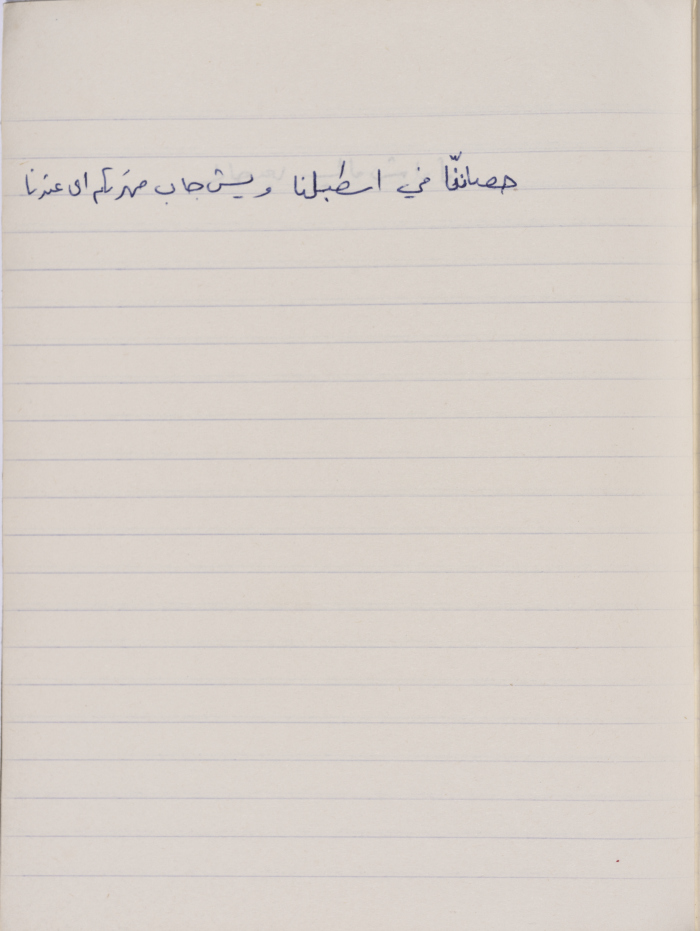 حصاننّا في اسطبلنا ويش جاب مهرتكم الى عندنا